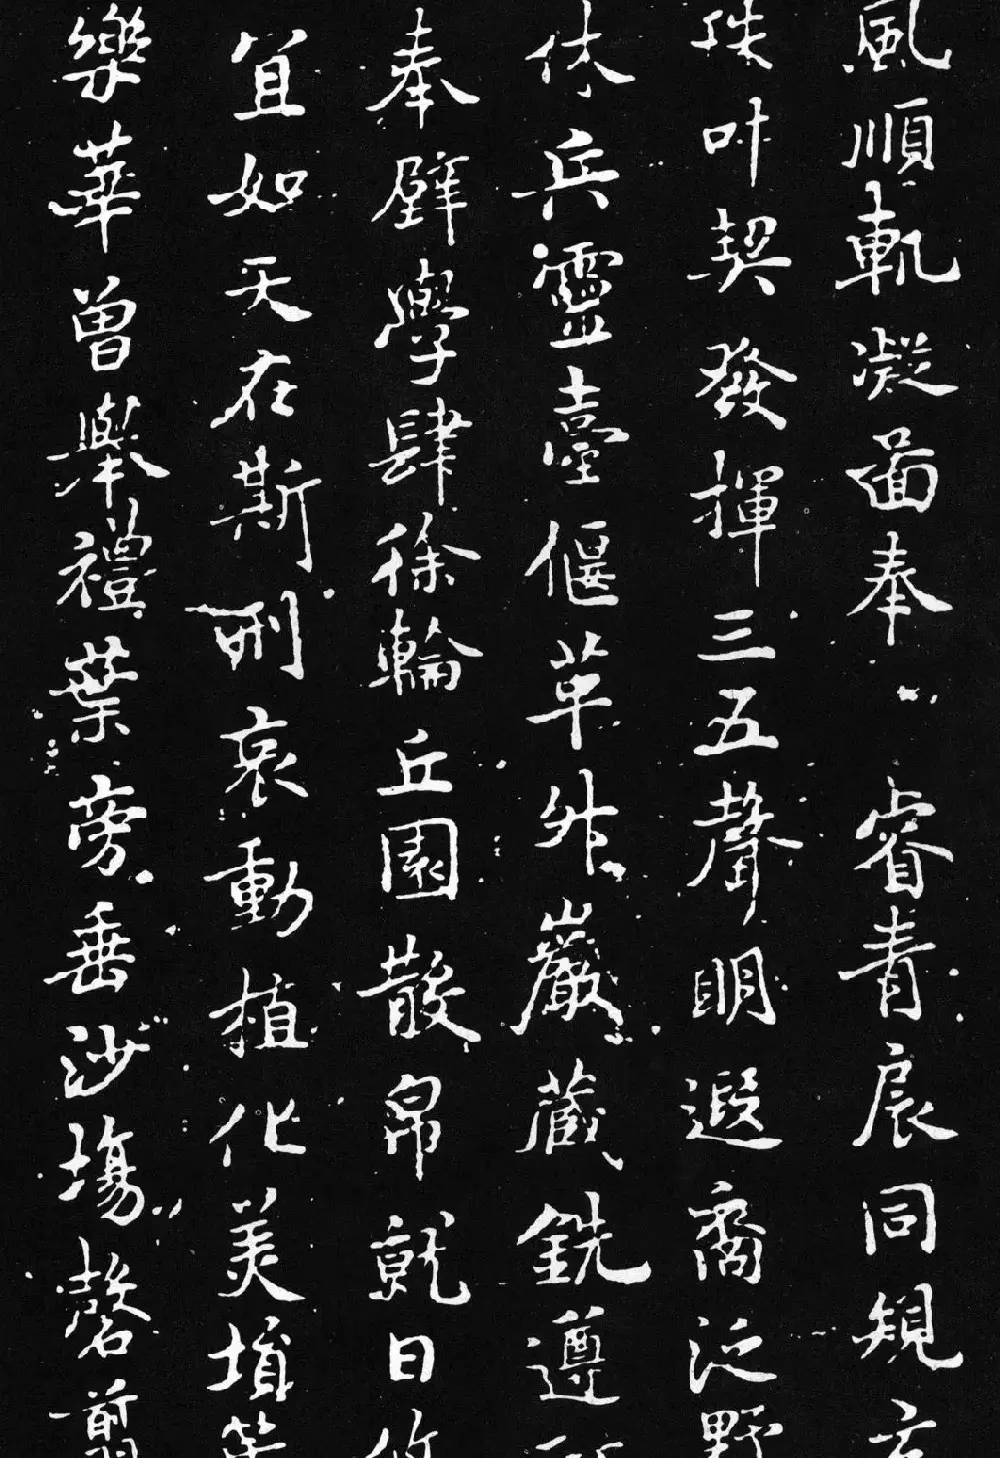 風順軌凝圖奉睿青扆同規玄
叶契發揮三五聲明遐裔泛野
休兵靈臺偃草外嚴藏銑遵
奉璧學肆徐輪丘園散帛就日
宜如天在斯刑哀動植化美
樂華曾舉禮葉旁垂沙場磬翦